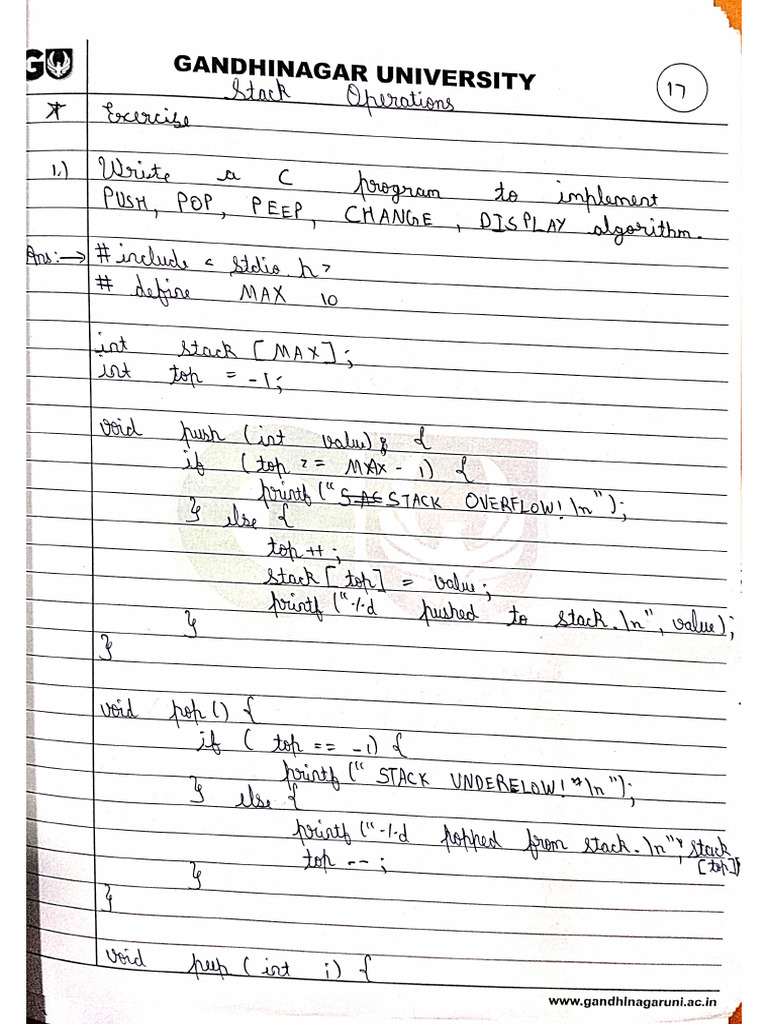 GU
GANDHINAGAR UNIVERSITY
17
Stack Operations
* Exercise
1.) Write a C program to implement
PUSH, POP, PEEP, CHANGE, DISPLAY algorithm.
Ans:→ # include < stdio.h>
# define MAX 10
int stack [MAX];
int top = -1;
void push (int value) {
if (top == MAX - 1) {
printf ("STACK OVERFLOW! \n");
} else {
top++;
stack [top] = value;
printf ("%d pushed to stack.\n", value);
}
}
void pop() {
if ( top == -1) {
printf (" STACK UNDERFLOW! \n");
} else {
printf ("%d popped from stack.\n", stack
[top])
top --;
}
}
void peep (int i) {
www.gandhinagaruni.ac.in